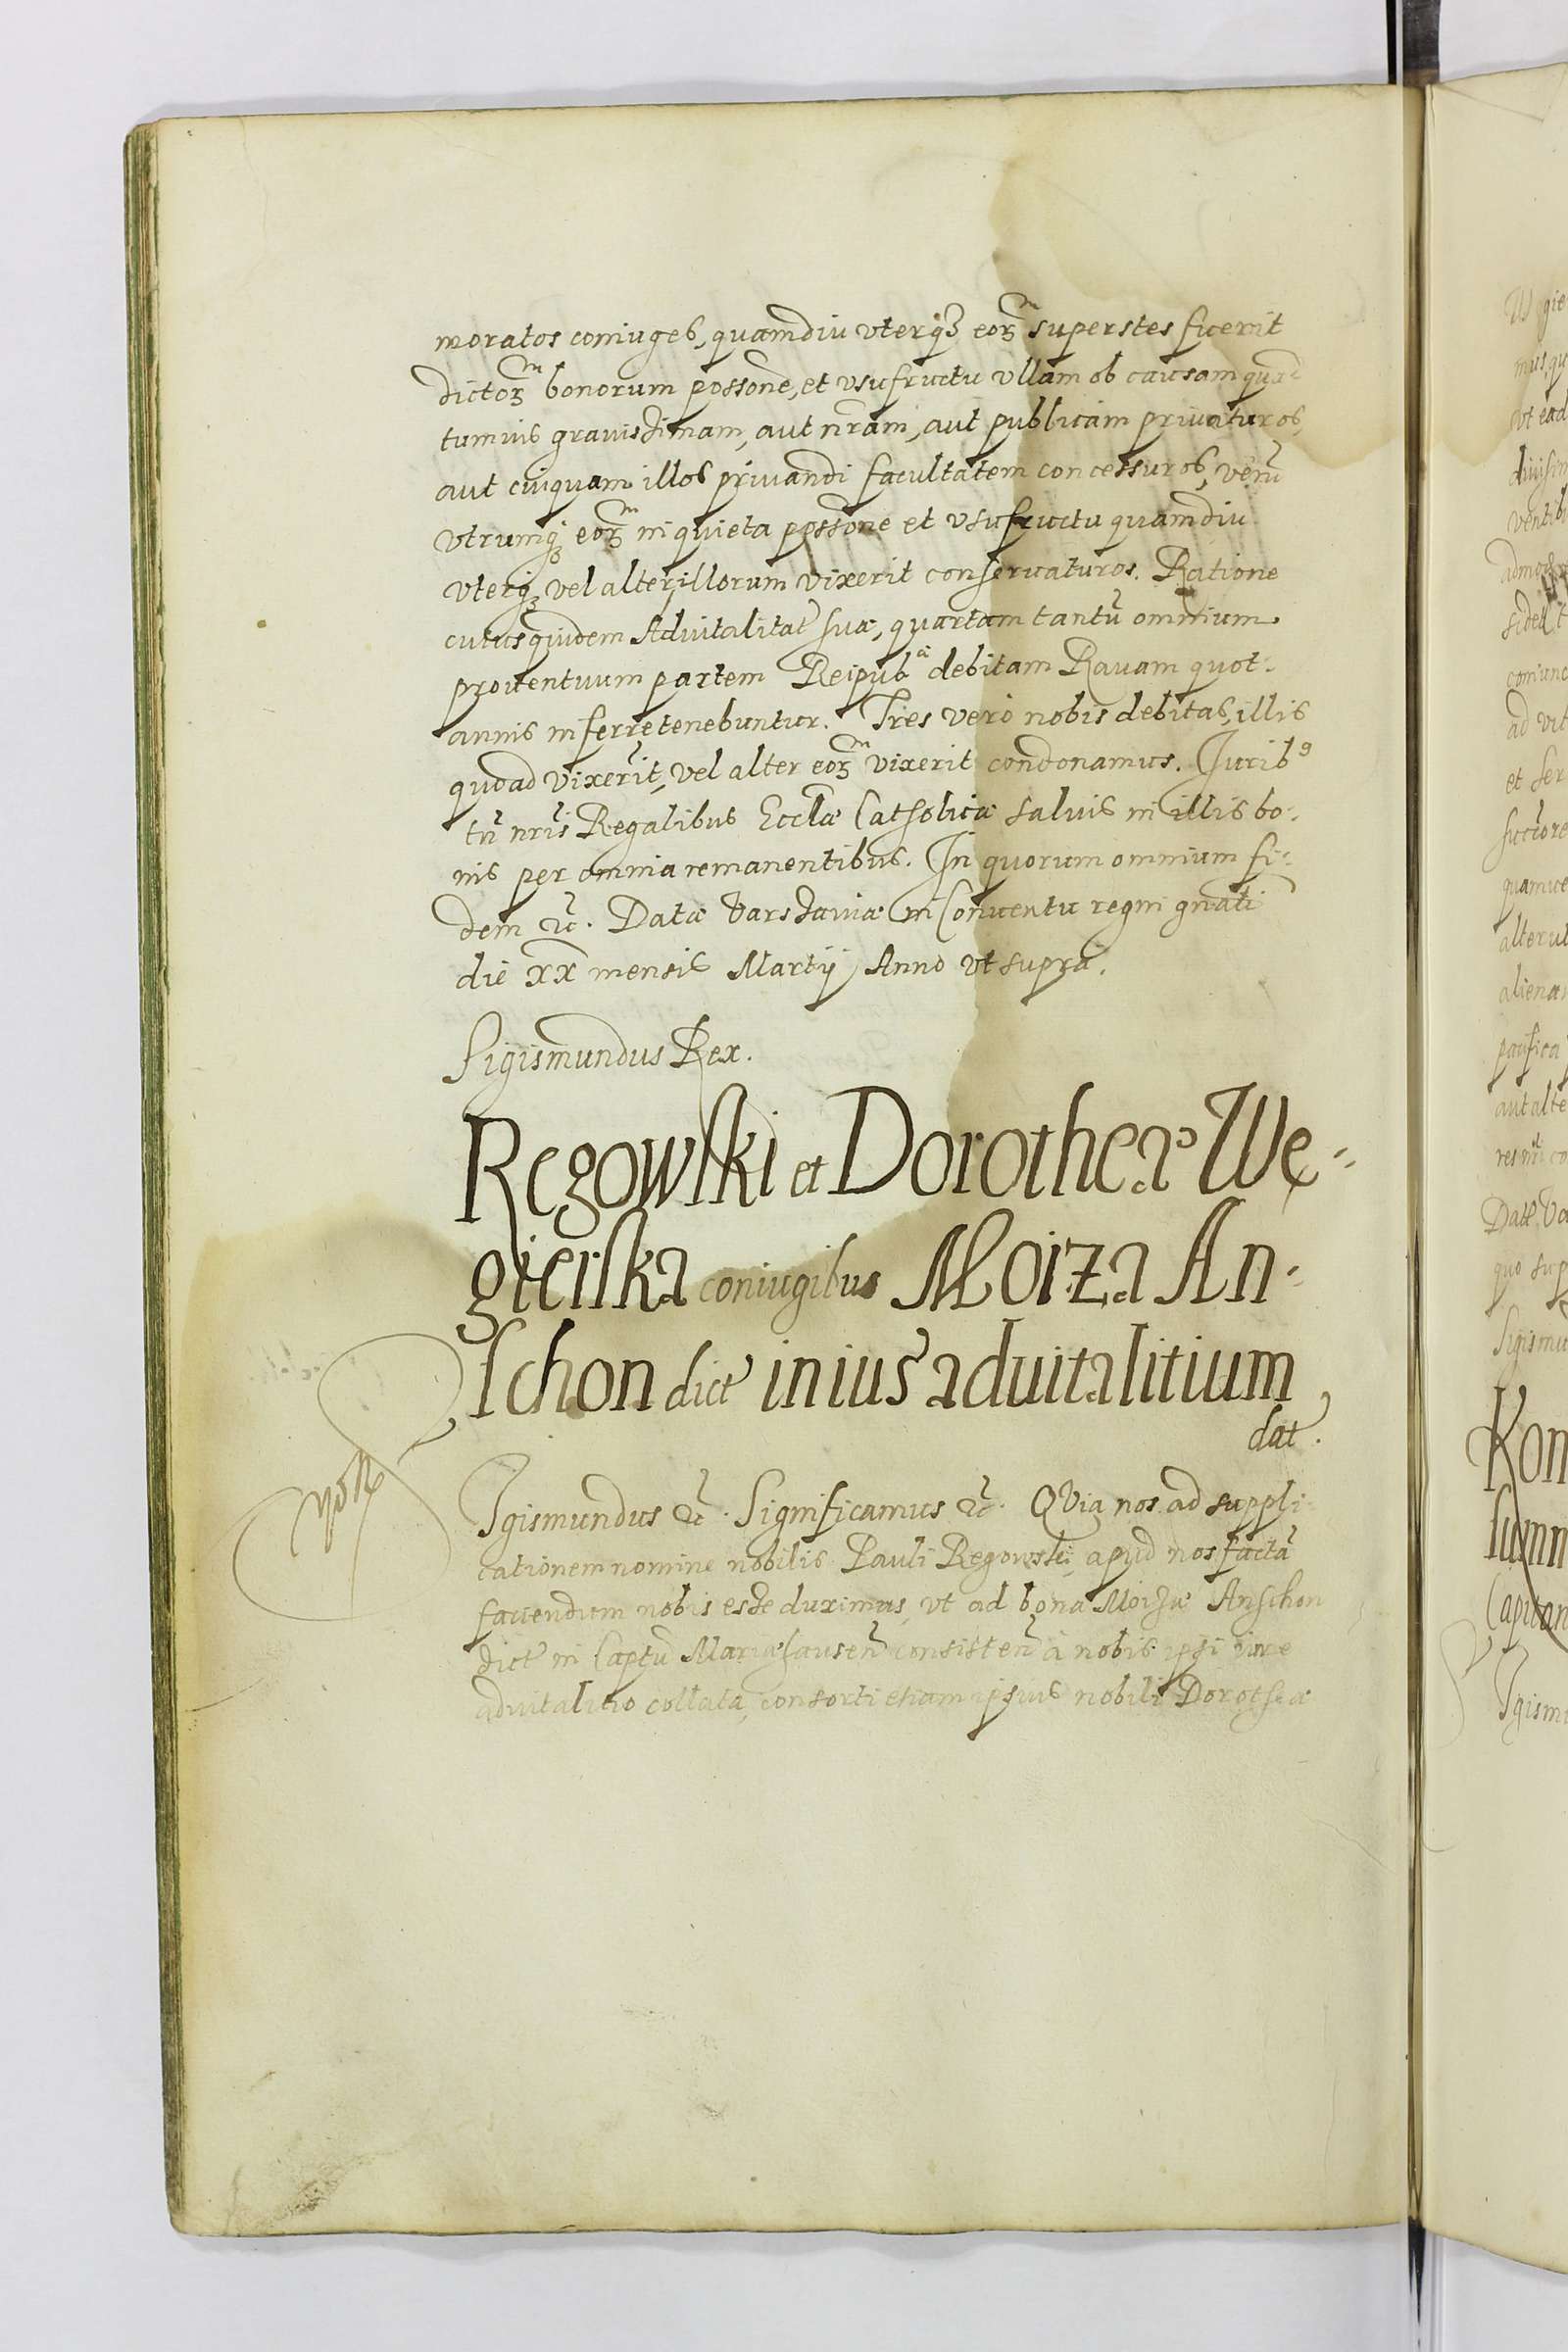 moratos coniuges, quamdiu vterq3 eorꝝ superstes fuerit
dictorꝝ bonorum possone, et vsufructu vllam ob causam quan
tumuis grauissimam, aut nram, aut publicam priuaturos,
aut cuiquam illos priuandi facultatem concessuros, verũ
vtrumq3 eorꝝ in quieta possone et vsufructu quamdiu
vterq3 vel alter illorum vixerit conseruaturos. Ratione
cuius quidem Aduitalitat suæ, quartam tantũ omnium
prouentuum partem Reipub debitam Rauam quot:
annis inferre tenebuntur. Tres vero nobis debitas, illis
quoad vixerit, vel alter eorꝝ vixerit condonamus. Iurib9
tñ nris Regalibus Eccla Catholicæ saluis in illis bo:
nis per omnia remanentibus. In quorum omnium fi:
dem &c. Data Varsauiæ in Conuentu regni gnali
die XX mensis Martij Anno vt supra.
Sigismundus Rex.
Regowski et Dorotheæ We:
gierska coniugibus Moiza An:
schon dict in ius aduitalitium
dat.
non
Sigismundus &c. Significamus &c. QVia nos ad suppli:
cationem nomine nobilis Pauli Regowski apud nos factã
faciendum nobis esse duximus, vt ad bona Moizæ Anschon
dict in Captu Mariæhausen consisten à nobis ipsi iure
aduitalitio collata, consorti etiam ipsius nobili Dorotheæ